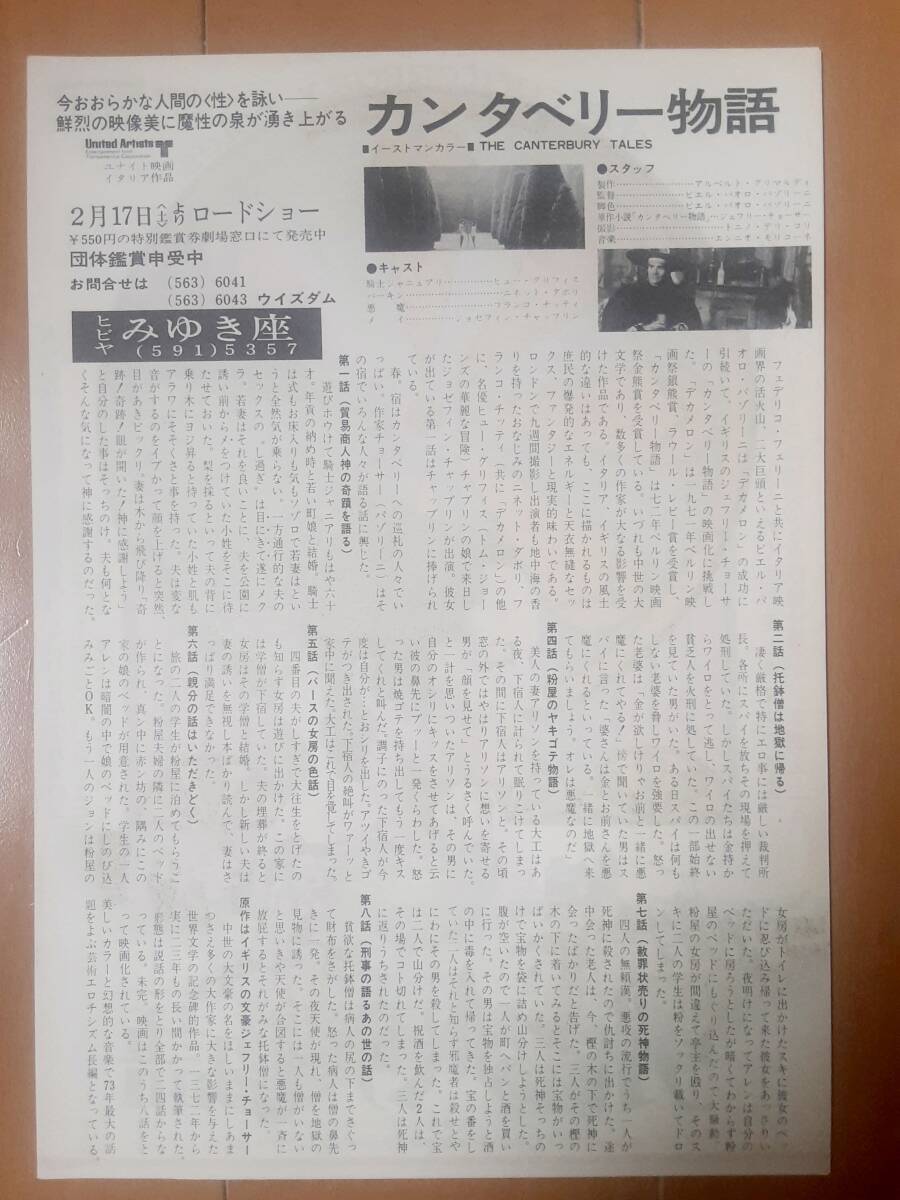 今おおらかな人間の〈性〉を詠い——
鮮烈の映像美に魔性の泉が湧き上がる
United Artists
ユナイト映画
イタリア作品
2月17日〈土〉よりロードショー
¥550円の特別鑑賞券劇場窓口にて発売中
団体鑑賞申受中
お問合せは (563) 6041
(563) 6043 ウイズダム
ヒビヤ みゆき座
(591) 5357
カンタベリー物語
■イーストマンカラー■ THE CANTERBURY TALES
●スタッフ
製作…アルベルト・グリマルディ
監督…ピエル・パオロ・パゾリーニ
脚色…ピエル・パオロ・パゾリーニ
原作小説「カンタベリー物語」…ジェフリー・チョーサー
撮影…トニノ・デリ・コリ
音楽…エンニオ・モリコーネ
●キャスト
騎士ジャニュアリー…ヒュー・グリフィス
パーキン…ニネット・ダボリ
悪魔…フランコ・チッティ
メイ…ジョセフィン・チャップリン
フェデリコ・フェリーニと共にイタリア映
画界の活火山、二大巨頭といえるピエル・パ
オロ・パゾリーニは「デカメロン」の成功に
引続いて、イギリスのジェフリー・チョーサ
ーの「カンタベリー物語」の映画化に挑戦し
た。「デカメロン」は一九七一年ベルリン映
画祭銀熊賞、ラウール・レビー賞を受賞し、
「カンタベリー物語」は七二年ベルリン映画
祭金熊賞を受賞している。いづれも中世の大
文学であり、数多くの作家が大なる影響を受
けた作品である。イタリア、イギリスの風土
的な違いはあっても、ここに描かれるものは
庶民の爆発的なエネルギーと天衣無縫なセッ
クス、ファンタジーと現実的味わいである。
ロンドンで九週間撮影し出演者も地中海の香
りを持ったおなじみのニネット・ダボリ、フ
ランコ・チッティ（共に「デカメロン」）の他
に、名優ヒュー・グリフィス（トム・ジョー
ンズの華麗な冒険）チャプリンの娘で来日し
たジョゼフィン・チャップリンが出演。彼女
が出ている第一話はチャップリンに捧げられ
ている。
春。宿はカンタベリーへの巡礼の人々でい
っぱい。作家チョーサー（パゾリーニ）はそ
の宿でいろんな人々が語る話に興じた。
第一話（貿易商人神の奇蹟を語る）
遊びホウけて騎士ジャニアリもはや六十
才。年貢の納め時と若い町娘と結婚。騎士
は式もお床入りも気もソゾロで若妻はとい
うと全然気が乗らない。一方通行的な夫の
セックスの、し過ぎ、は目にきて遂にメク
ラ。若妻はそれを良いことに、夫を公園に
誘い前からメをつけていた小姓をそこに待
たせておいた。梨を採るといって夫の背に
乗り木にヨジ昇ると待っていた小姓と肌も
アラワにそそくさと事を持った。夫は変な
音がするのをイブかって顔を上げると突然、
目があきビックリ。妻は木から飛び降り「奇
跡！奇跡！眼が開いた！神に感謝しよう」
と自分のした事はそっちのけ。夫も何とな
くそんな気になって神に感謝するのだった。
第二話（托鉢僧は地獄に帰る）
凄く厳格で特にエロ事には厳しい裁判所
長。各所にスパイを放ちその現場を押えて
処刑していた。しかしスパイたちは金持か
らワイロをとって逃し、ワイロの出せない
貧乏人を火刑に処していた。この一部始終
を見ていた男がいた。ある日スパイは何も
しない老婆を脅しワイロを強要した。怒っ
た老婆は「金が欲しけりゃお前と一緒に悪
魔にくれてやる！」傍で聞いていた男はス
パイに言った「婆さんは金とお前さんを悪
魔にくれるといっている。一緒に地獄へ来
てもらいましょう。オレは悪魔なのだ」
第四話（粉屋のヤキゴテ物語）
美人の妻アリソンを持っている大工はあ
る夜、下宿人に計られて眠りこけてしまっ
た。その間に下宿人はアリソンと。その頃
窓の外ではやはりアリソンに想いを寄せる
男が「顔を見せて」とうるさく呼んでいた。
と一計を思いついたアリソンは、その男に
自分のオシリにキッスをさせてあげると云
い彼の鼻先にブッーと一発くらわした。怒
った男は焼ゴテを持ち出してもう一度キス
してくれと叫んだ。調子にのった下宿人が今
度は自分が…とおシリを出した。アツイやきゴ
テがつき出された。下宿人の絶叫がワァーッと
家中に聞えた。大工はこれで目を覚してしまった。
第五話（バースの女房の色話）
四番目の夫がしすぎて大往生をとげたの
も知らず女房は遊びに出かけた。この家に
は学僧が下宿していた。夫の埋葬が終ると
女房はその学僧と結婚。しかし新しい夫は
妻の誘いを無視し本ばかり読んで、妻はさ
っぱり満足できなかった。
第六話（親分の話はいただきどく）
旅の二人の学生が粉屋に泊めてもらうこ
とになった。粉屋夫婦の隣に二人のベッド
が作られ、真ン中に赤ン坊の、隅みにこの
家の娘のベッドが用意された。学生の一人
アレンは暗闇の中で娘のベッドにしのび込
みみごとOK。もう一人のジョンは粉屋の
女房がトイレに出かけたスキに彼女のベッ
ドに忍び込み帰って来た彼女をあっさりい
ただいた。夜明けになってアレンは自分の
ベッドに戻ろうとしたが暗くてわからず粉
屋のベッドにもぐり込んだので大騒動。
粉屋の女房が間違えて亭主を殴り、そのス
キに二人の学生は粉をソックリ戴いてドロ
ンしてしまった。
第七話（赦罪状売りの死神物語）
四人の無頼漢。悪疫の流行でうち一人が
死神に殺されたので仇討ちに出かけた。途
中会った老人は、今、樫の木の下で死神に
会ったばかりだと告げた。三人がその樫の
木の下に着いてみるとそこには宝物がいっ
ぱいかくされていた。三人は死神そっちの
けで宝物を袋に詰め山分けしようとしたが
腹が空いたので一人が町へパンと酒を買い
に行った。その男は宝物を独占しようと酒
の中に毒を入れて帰ってきた。宝の番をし
ていた二人はそれと知らず邪魔者は殺せとや
にわにその男を殺してしまった。これで宝
は二人で山分けだ。祝酒を飲んだ2人は、
その場でコト切れてしまった。三人は死神
に返りうちされたのだった。
第八話（刑事の語るあの世の話）
貪欲な托鉢僧は病人の尻の下までさぐっ
て財布をさがした。怒った病人は僧の鼻先
きに一発。その夜天使が現れ、僧を地獄の
見物に誘った。そこには一人も僧がいない
と思いきや天使が合図すると悪魔が一斉に
放屁するとそれがみな托鉢僧になった。
原作はイギリスの文豪ジェフリー・チョーサー
中世の大文豪の名をほしいままにしあま
つさえ多くの大作家に大きな影響を与えた
世界文学の記念碑的作品。一三七二年から
実に二三年もの長い間かかって執筆された。
形態は説話の形をとり全部で二四話からな
っている。未完。映画はこのうち八話をと
って映画化されている。
美しいカラーと幻想的な音楽で73年最大の話
題をよぶ芸術エロチシズム長編となっている。